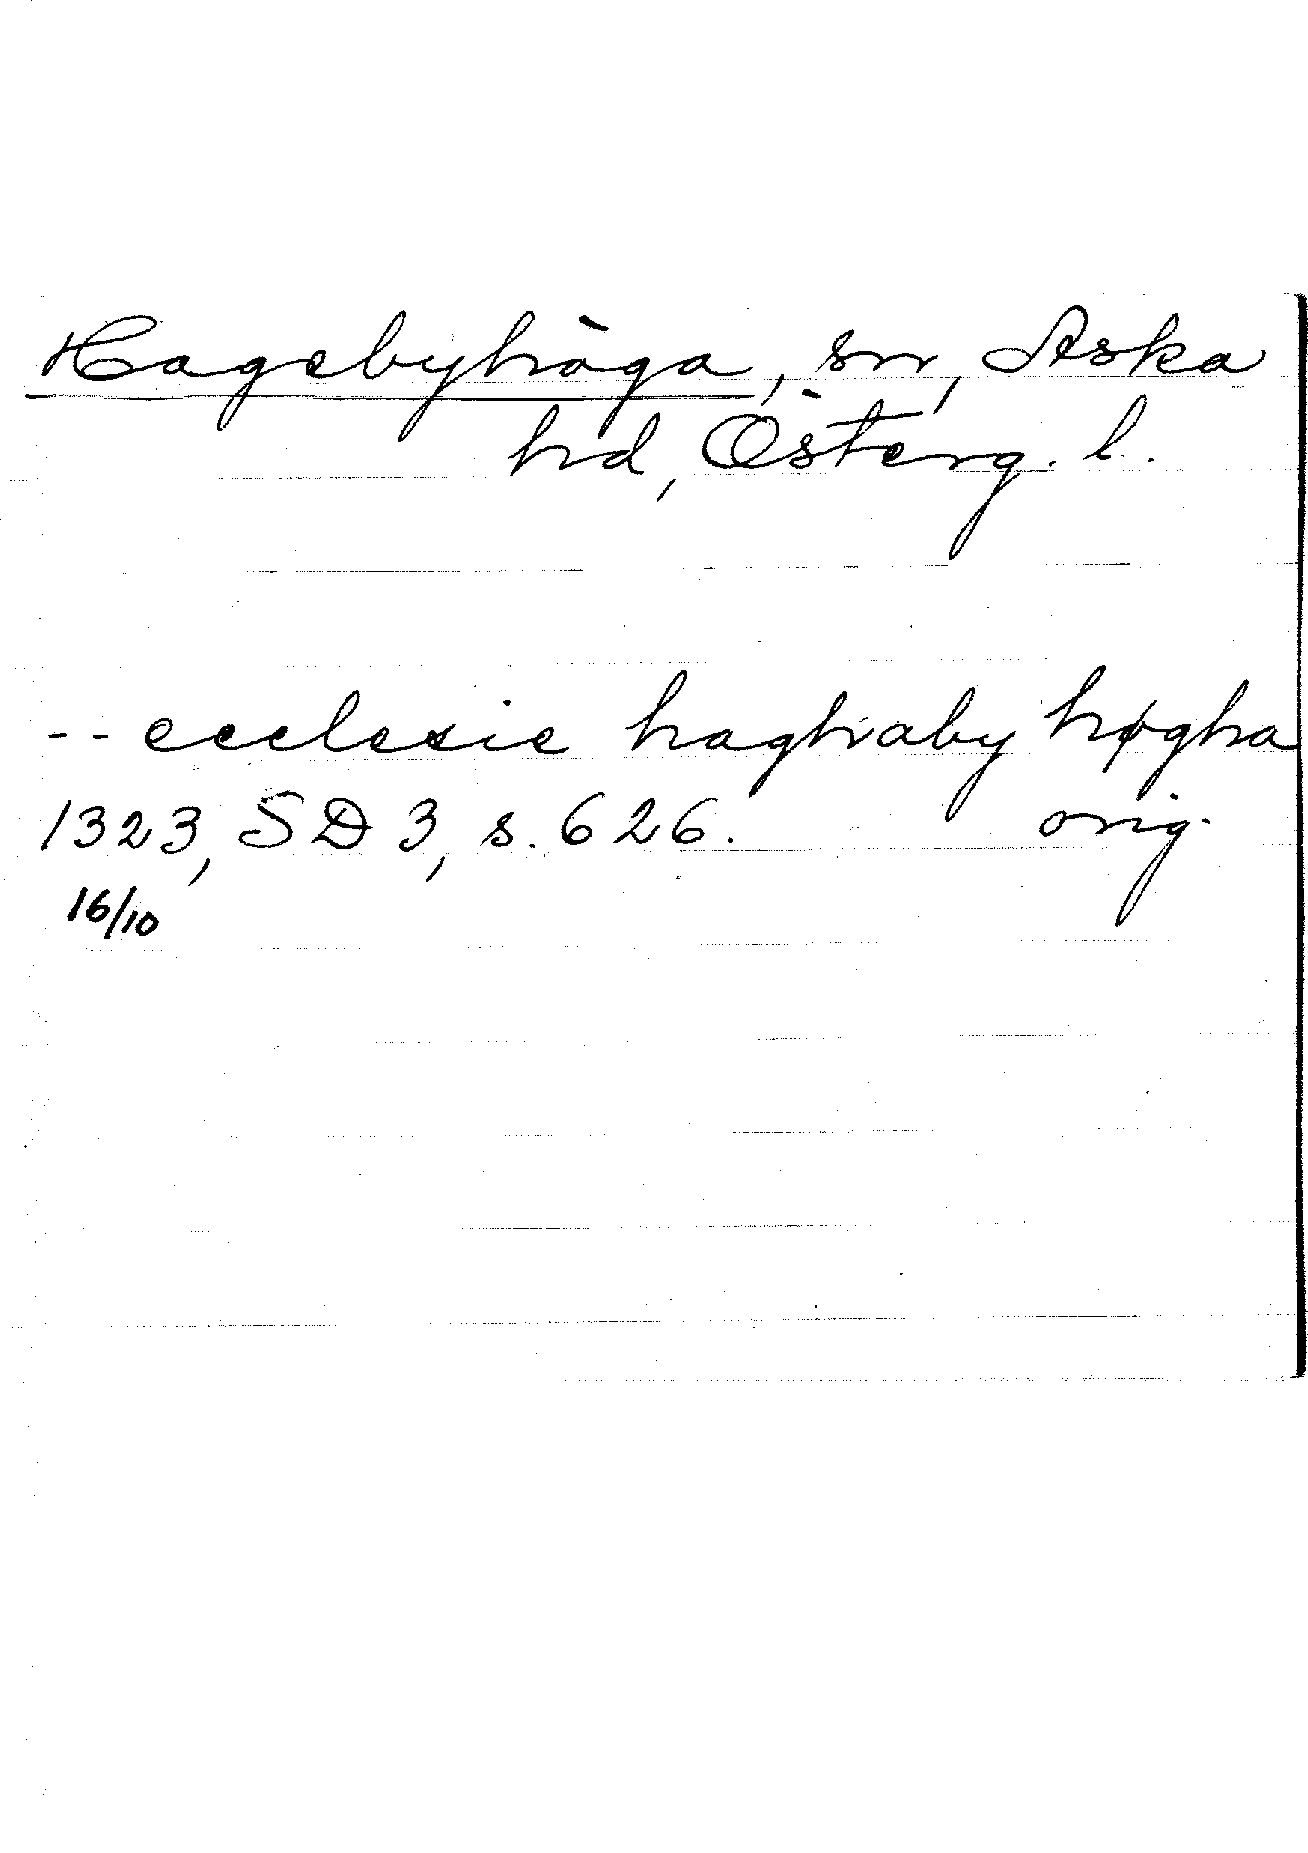 Hagebyhöga, sn, Aska
hd, Österg. l.
-- ecclesie haghaby høgha
1323, SD 3, s. 626. orig.
16/10